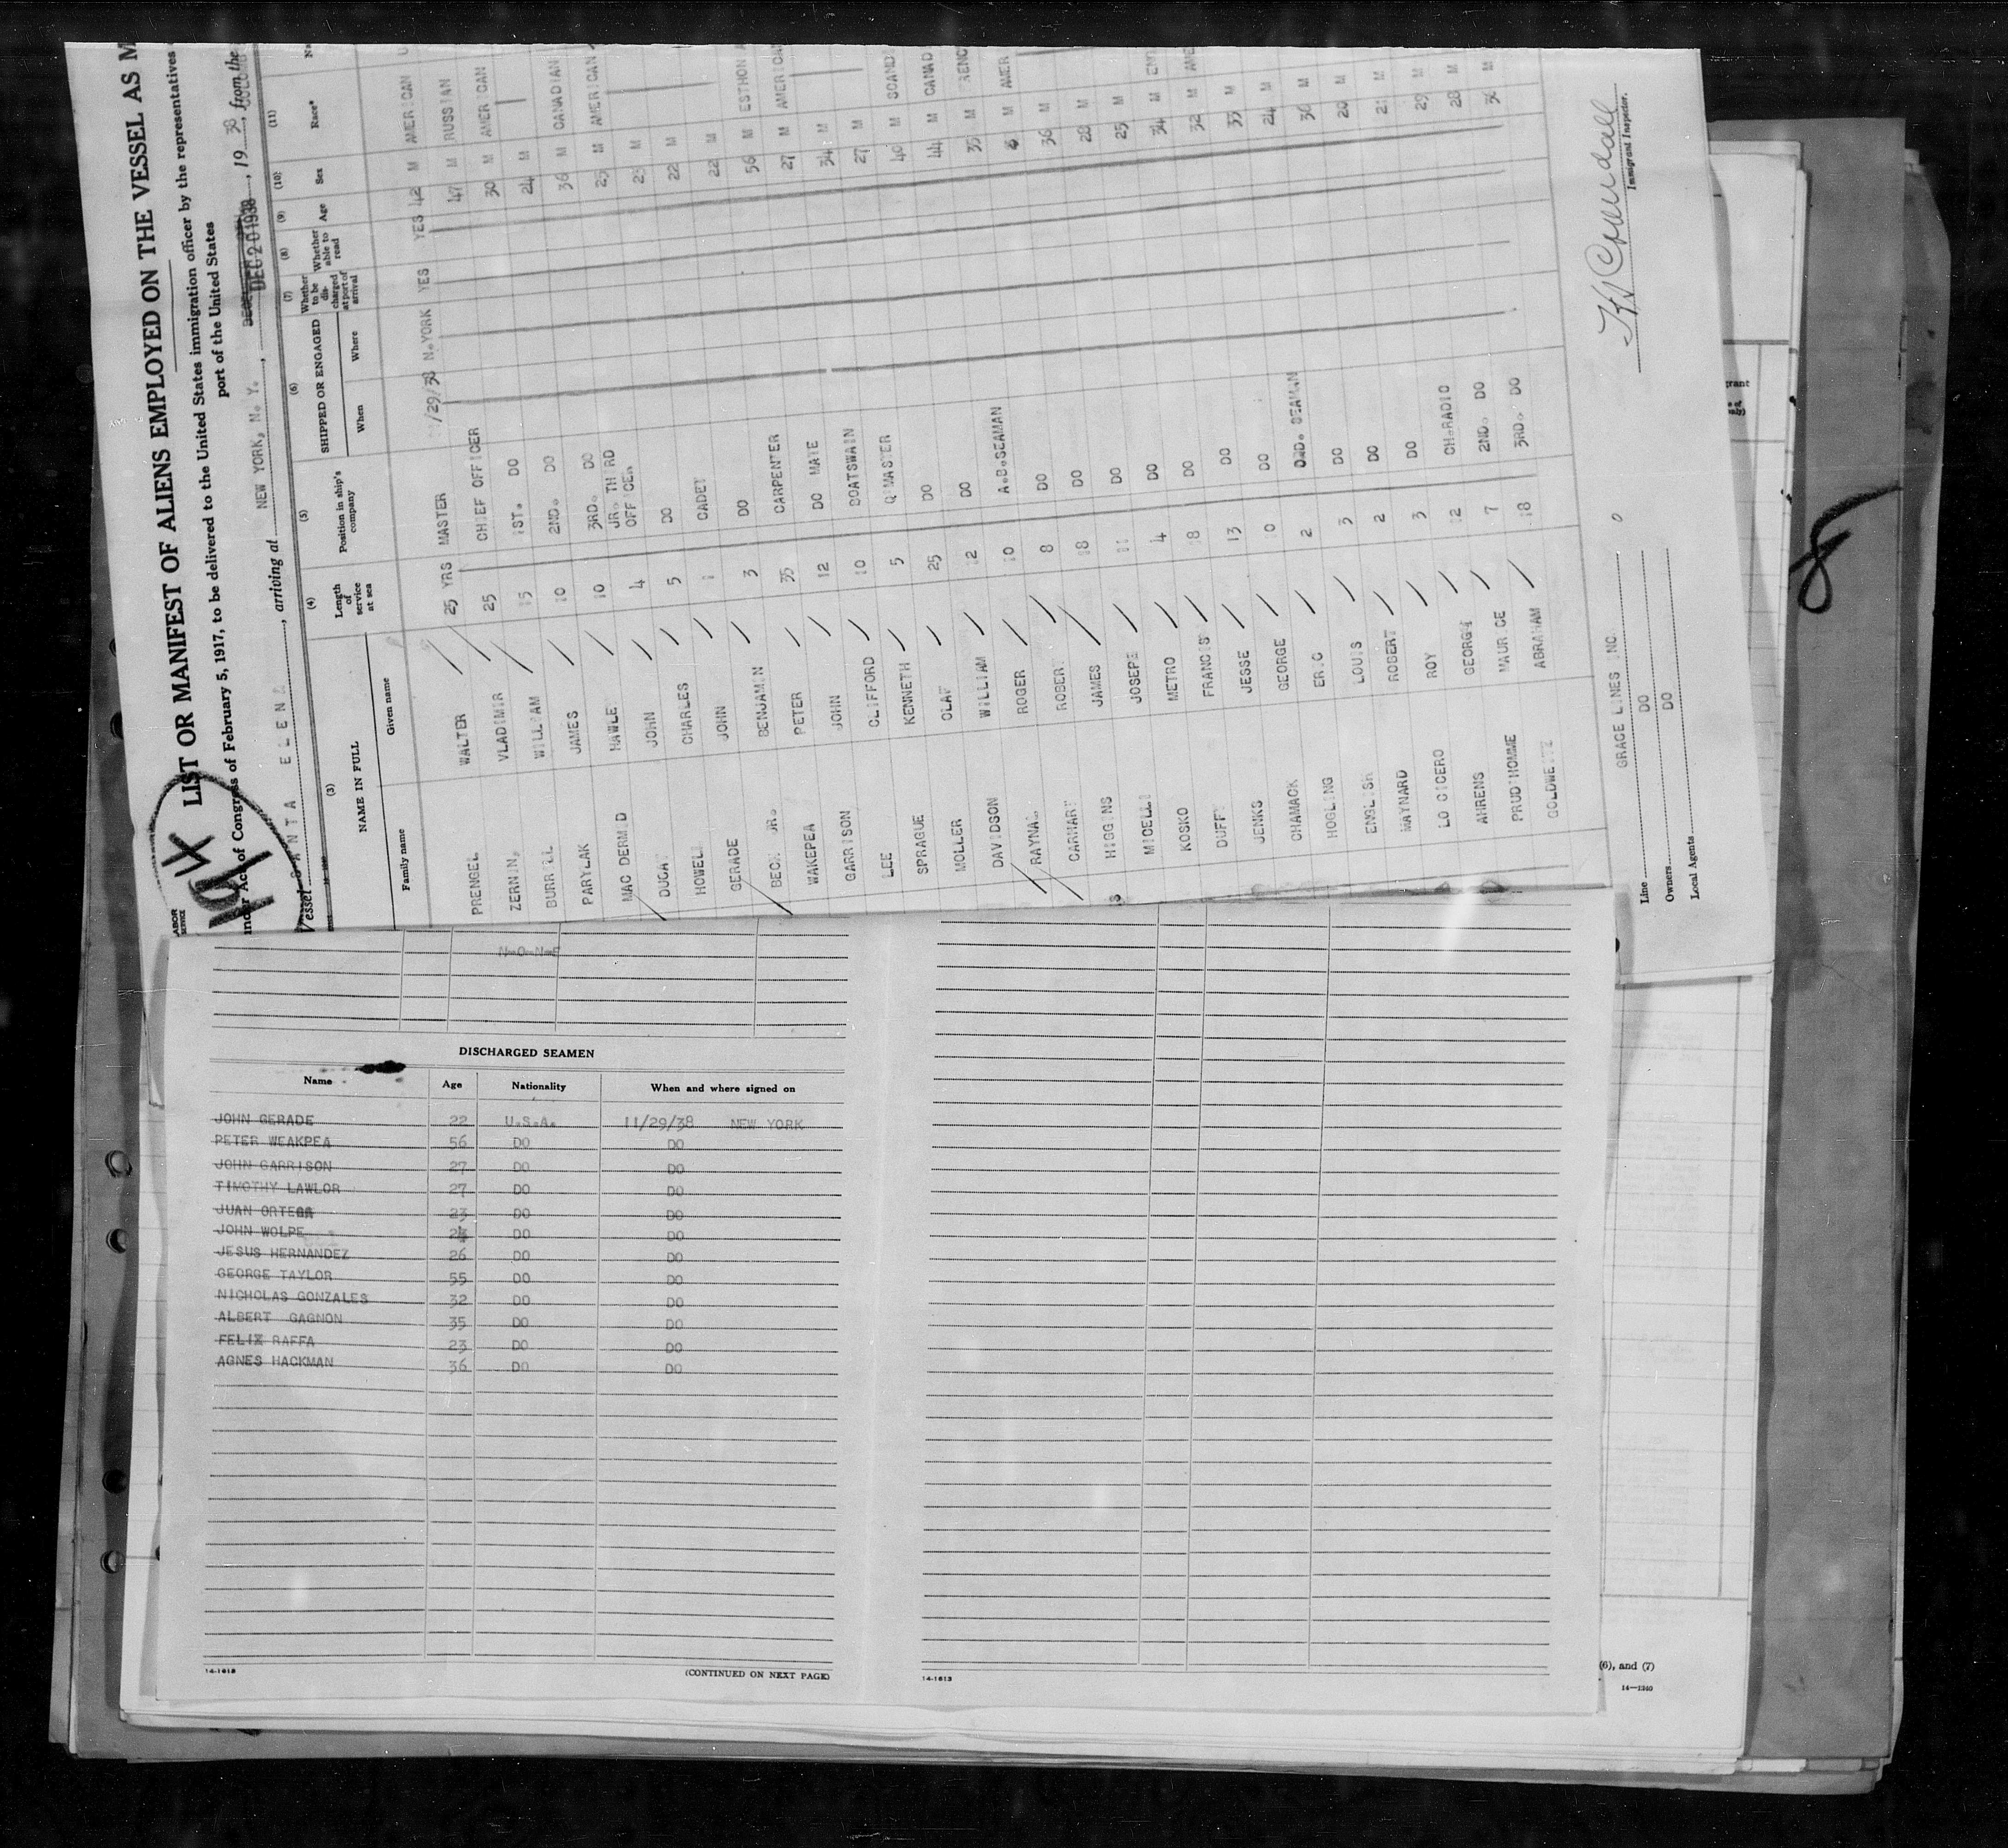 LIST OR MANIFEST OF ALIENS EMPLOYED ON THE VESSEL AS M
under Act of Congress of February 5, 1917, to be delivered to the United States immigration officer by the representatives
port of the United States
Vessel SANTA ELENA, arriving at NEW YORK, N. Y., DEC 20 1938, 1938, from the
(3) (4) (5) (6) (7) (8) (9) (10) (11)
NAME IN FULL Length of service at sea Position in ship's company SHIPPED OR ENGAGED Whether to be discharged at port of arrival Whether able to read Age Sex Race*
Family name Given name When Where
PRENGEL WALTER 25 YRS MASTER /29/38 N.YORK YES YES 42 M AMERICAN
VLADIMIR 25 CHIEF OFFICER 47 M RUSSIAN
BURRILL WILLIAM 15 1ST. DO 30 M AMERICAN
PARYLAK JAMES 10 2ND. DO 24 M
MAC DERMID HAWLE 10 3RD. DO 36 M CANADIAN
DUCAT JOHN 4 JR. THIRD OFFICER 25 M AMERICAN
HOWELL CHARLES 5 DO 23 M
GERADE JOHN 1 CADET 22 M
BECK JR. BENJAMIN 3 DO 22 M
WAKEPEA PETER 35 CARPENTER 56 M ESTHON
GARRISON JOHN 12 DO MATE 27 M AMERICA
LEE CLIFFORD 10 BOATSWAIN 34 M
SPRAGUE KENNETH 5 Q'MASTER 27 M
MOLLER OLAF 25 DO 40 M SCAND
DAVIDSON WILLIAM 12 DO 44 M CANAD
RAYNAL ROGER 10 A.B.SEAMAN 35 M FRENC
ROBERT 8 DO M AMER
HIGGINS JAMES 18 DO 36 M
MICELLI JOSEPH 11 DO 28 M
KOSKO METRO 4 DO 25 M
DUFFY FRANCIS 18 DO 34 M
JENKS JESSE 13 DO 32 M AME
CHAMACK GEORGE 10 DO 33 M
HOGLING ERIC 2 ORD. SEAMAN 24 M
ENGLISH LOUIS 3 DO 36 M
MAYNARD ROBERT 2 DO 20 M
LO CICERO ROY 3 DO 21 M
AHRENS GEORGE 12 CH.RADIO 29 M
PRUD'HOMME MAURICE 7 2ND. DO 28 M
ABRAHAM 18 3RD. DO 36 M
Line GRACE LINES INC.
Owners DO
Local Agents DO
Immigrant Inspector.
N-O-N-E
DISCHARGED SEAMEN
Name Age Nationality When and where signed on
JOHN GERADE 22 U.S.A. 11/29/38 NEW YORK
PETER WEAKPEA 56 DO DO
JOHN GARRISON 27 DO DO
TIMOTHY LAWLOR 27 DO DO
JUAN ORTEGA 23 DO DO
JOHN WOLPE DO DO
JESUS HERNANDEZ 26 DO DO
GEORGE TAYLOR 55 DO DO
NICHOLAS GONZALES 32 DO DO
ALBERT GAGNON 35 DO DO
FELIX RAFFA 23 DO DO
AGNES HACKMAN 36 DO DO
14-1613 (CONTINUED ON NEXT PAGE)
14-1613
(6), and (7)
14—1240